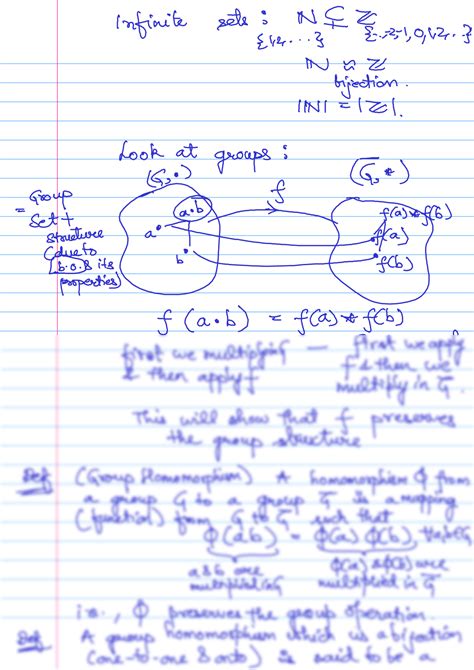 Infinite sets : ℕ ⊊ ℤ
{1,2,...} {..,-2,-1,0,1,2,..}
ℕ ≈ ℤ
bijection.
|ℕ| = |ℤ|.
Look at groups :
(G, •) (G̅, *)
Group
= Set +
structure
(due to
b.o. & its
properties)
f
a•b
a•
b•
f(a)*f(b)
f(a)
f(b)
f (a•b) = f(a)*f(b)
first we multiplying — first we apply
& then apply f f & then we
multiply in G̅.
This will show that f preserves
the group structure
Def (Group Homomorphism) A homomorphism ϕ from
a group G to a group G̅ is a mapping
(function) from G to G̅ such that
ϕ(ab) = ϕ(a) ϕ(b), ∀a,b∈G
a & b are ϕ(a) & ϕ(b) are
multiplied in G multiplied in G̅
i.e., ϕ preserves the group operation.
Def A group homomorphism which is a bijection
(one-to-one & onto) is said to be a